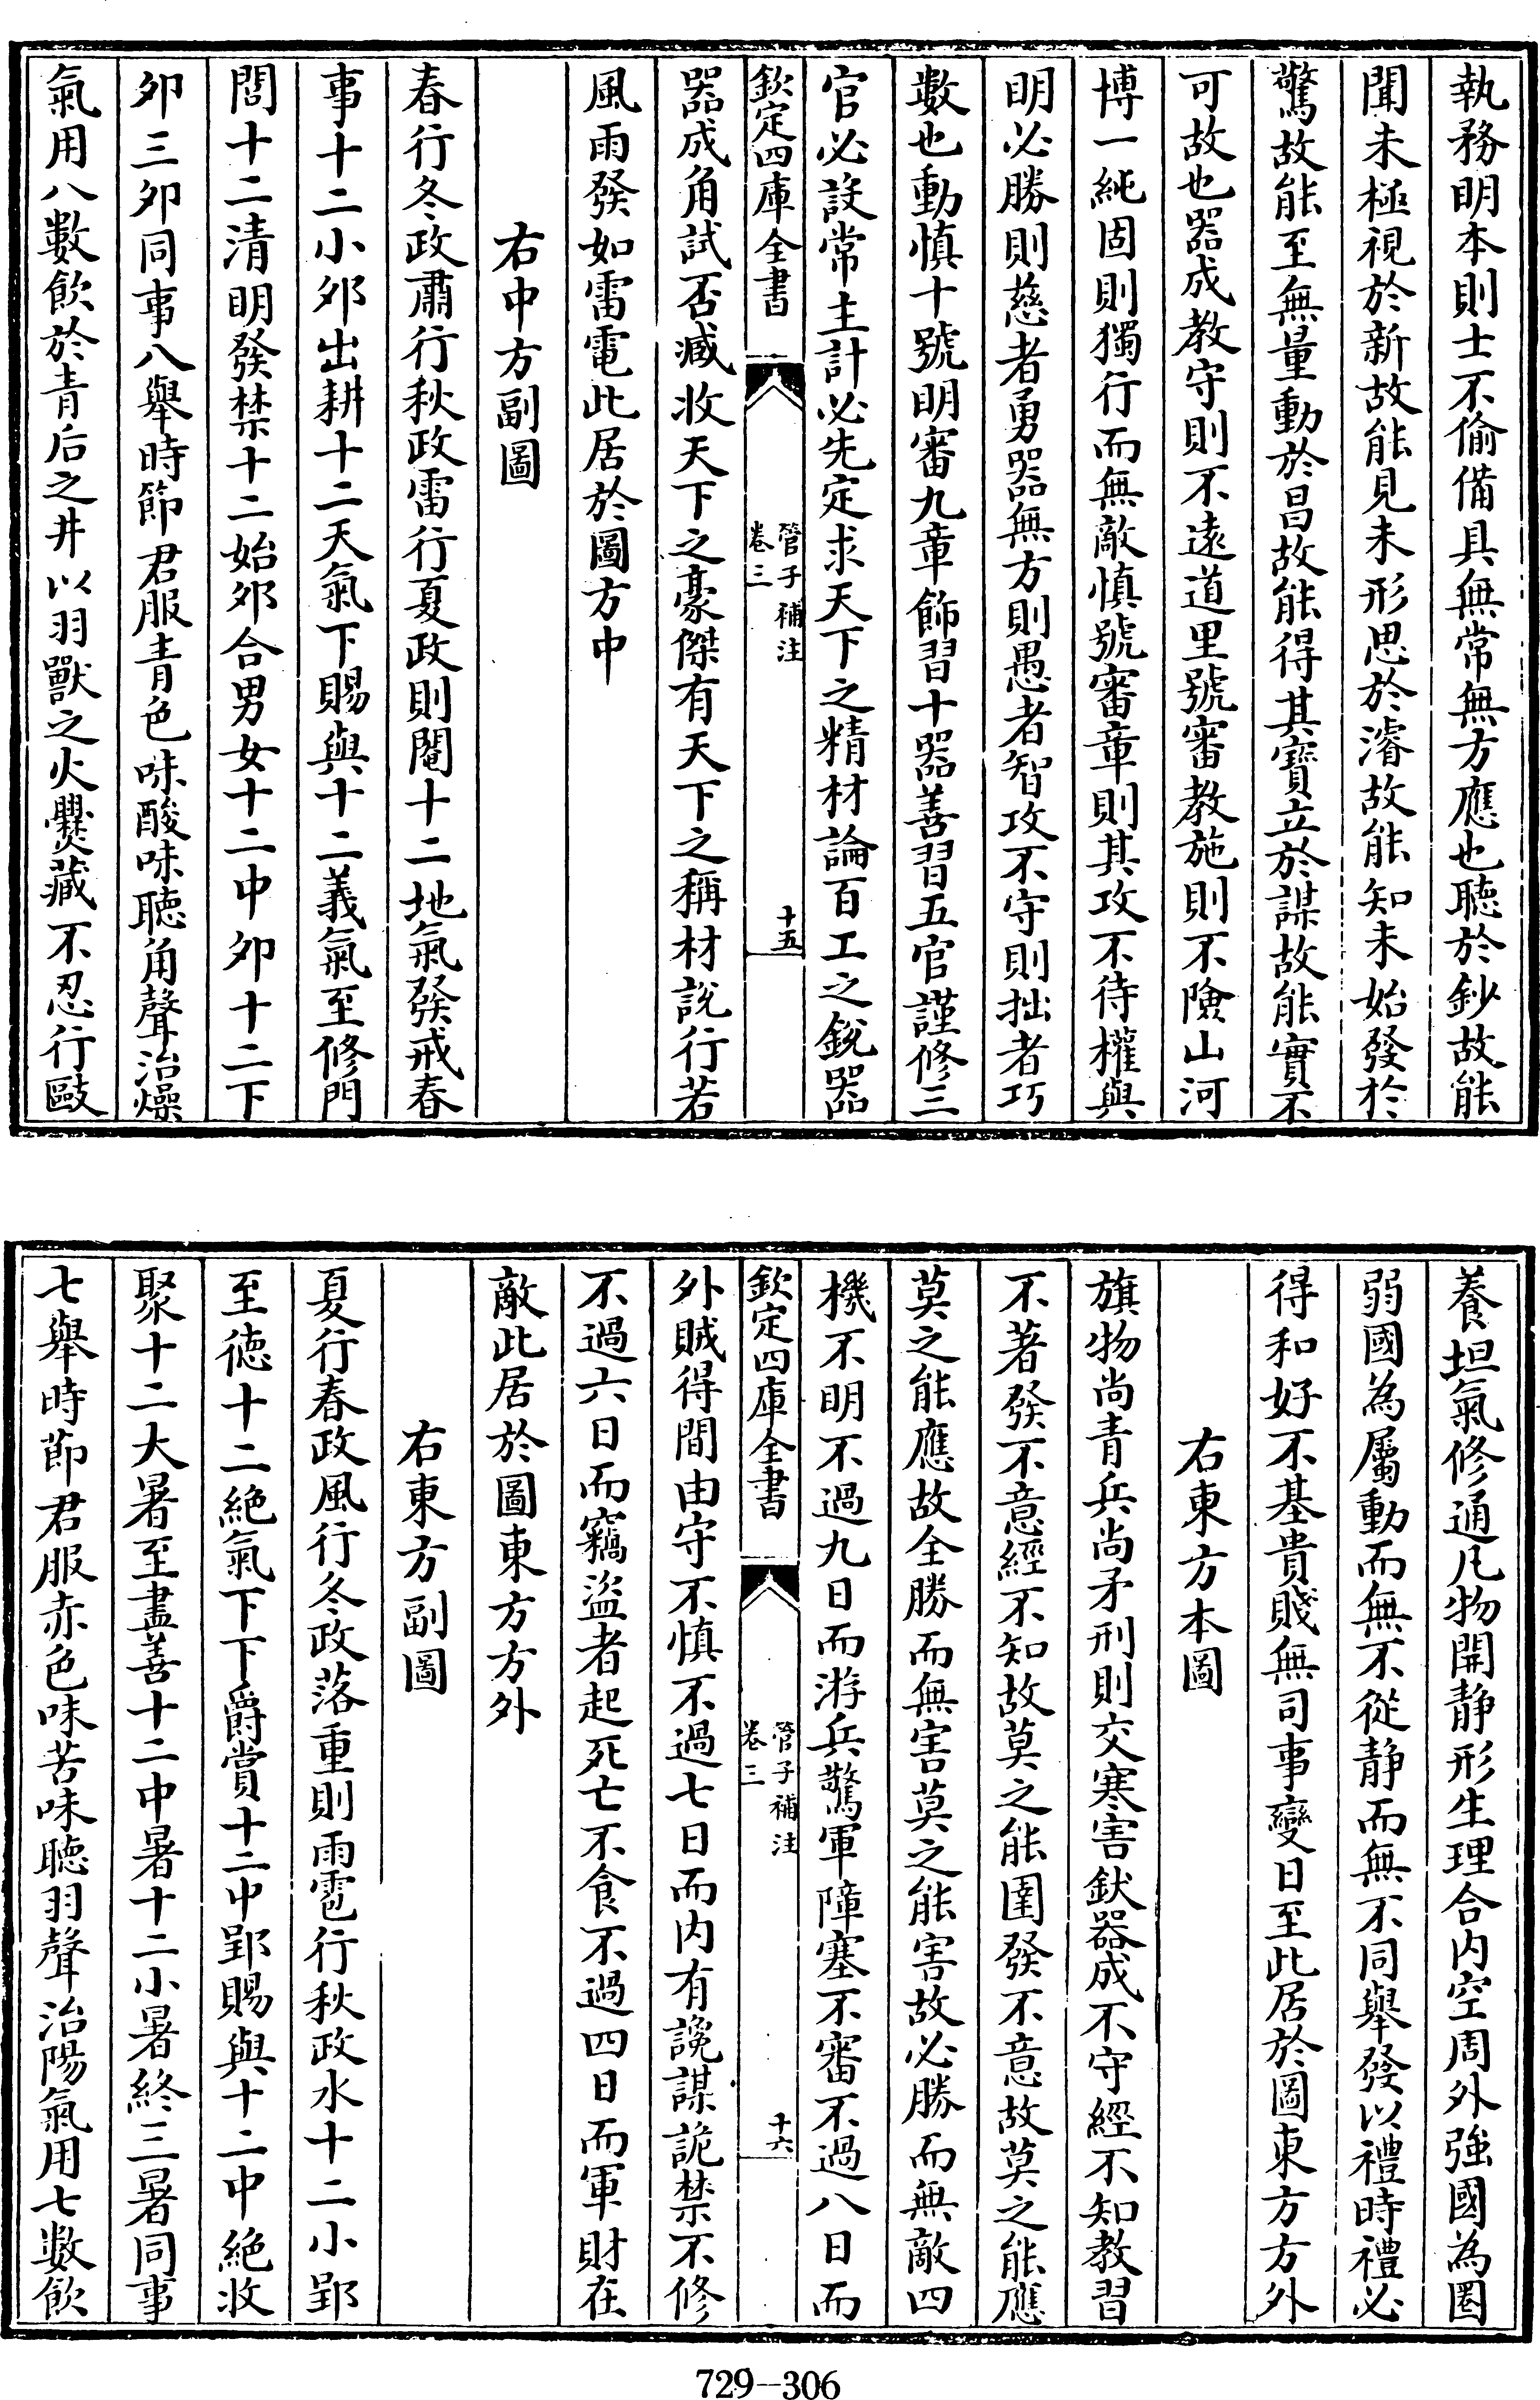 執務明本則士不偷備具無常無方應也聽於鈔故能
聞未極視於新故能見未形思於濬故能知未始發於
驚故能至無量動於昌故能得其寶立於謀故能實不
可故也器成教守則不遠道里號審教施則不險山河
博一純固則獨行而無敵慎號審章則其攻不待權與
明必勝則慈者勇器無方則愚者智攻不守則拙者巧
數也動慎十號明審九章飾習十器善習五官謹修三
官必設常主計必先定求天下之精材論百工之銳器
欽定四庫全書
管子補注
卷三
十五
器成角試否臧收天下之豪傑有天下之稱材說行若
風雨發如雷電此居於圖方中
右中方副圖
春行冬政肅行秋政雷行夏政則閹十二地氣發戒春
事十二小夘出耕十二天氣下賜與十二義氣至修門
閭十二清明發禁十二始夘合男女十二中夘十二下
夘三夘同事八舉時節君服青色味酸味聽角聲治燥
氣用八數飲於青后之井以羽獸之火爨藏不忍行敺
養坦氣修通凡物開静形生理合内空周外強國為圈
弱國為屬動而無不從静而無不同舉發以禮時禮必
得和好不基貴賤無司事變日至此居於圖東方方外
右東方本圖
旗物尚青兵尚矛刑則交寒害釱器成不守經不知教習
不著發不意經不知故莫之能圉發不意故莫之能應
莫之能應故全勝而無害莫之能害故必勝而無敵四
機不明不過九日而游兵驚軍障塞不審不過八日而
欽定四庫全書
管子補注
卷三
十六
外賊得間由守不慎不過七日而内有讒謀詭禁不修
不過六日而竊盜者起死亡不食不過四日而軍財在
敵此居於圖東方方外
右東方副圖
夏行春政風行冬政落重則雨雹行秋政水十二小郢
至徳十二絶氣下下爵賞十二中郢賜與十二中絶收
聚十二大暑至盡善十二中暑十二小暑終三暑同事
七舉時節君服赤色味苦味聽羽聲治陽氣用七數飲
729—306